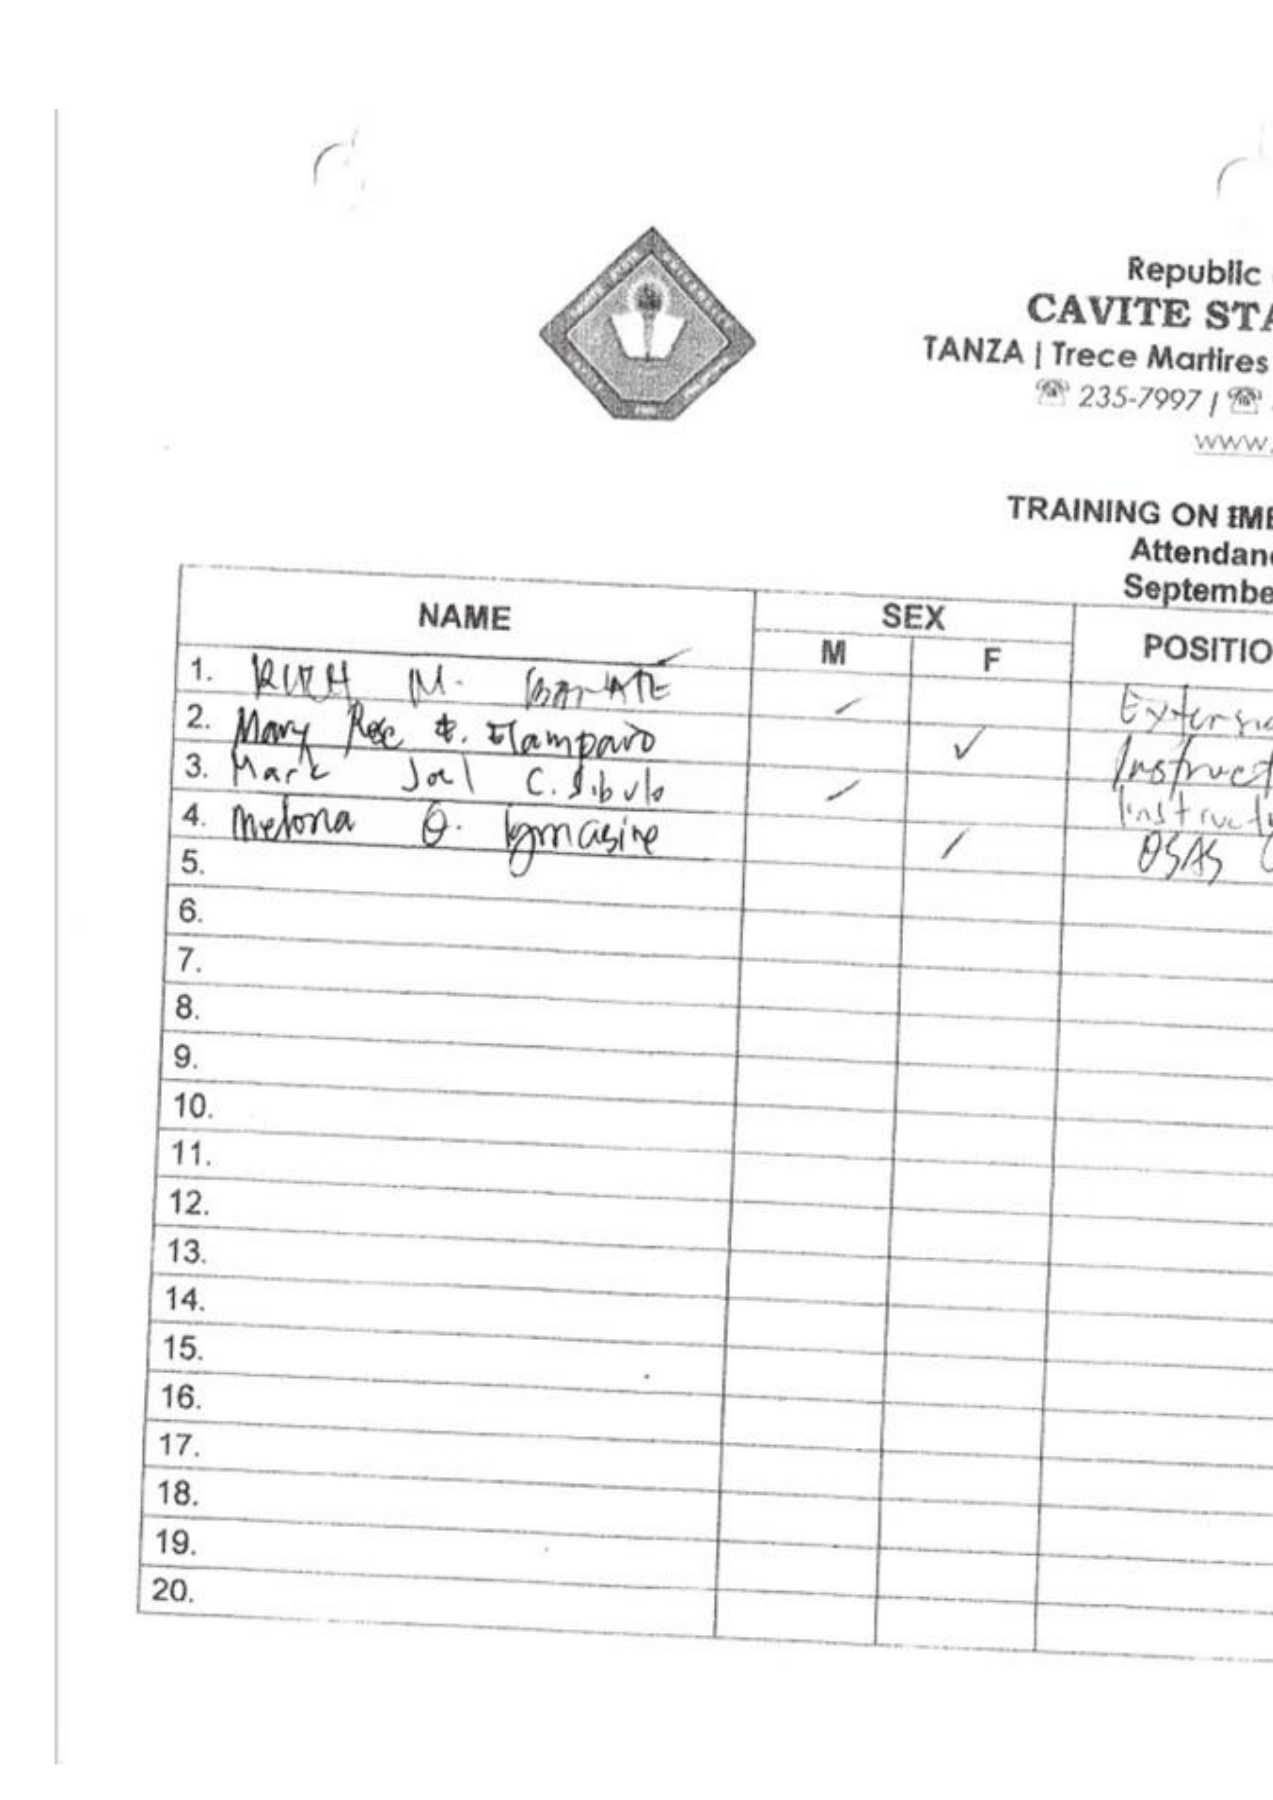 Republic
CAVITE STA
TANZA | Trece Martires
☎ 235-7997 / ☎
www.
TRAINING ON IME
Attendan
Septembe
NAME SEX POSITIO
M F
1. M. /
2. Mary Rose E. Elamparo ✓ Instruct
3. Mark Joel C. Sibulo / Instructo
4. Melona O. Igmasine / OSAS
5.
6.
7.
8.
9.
10.
11.
12.
13.
14.
15.
16.
17.
18.
19.
20.